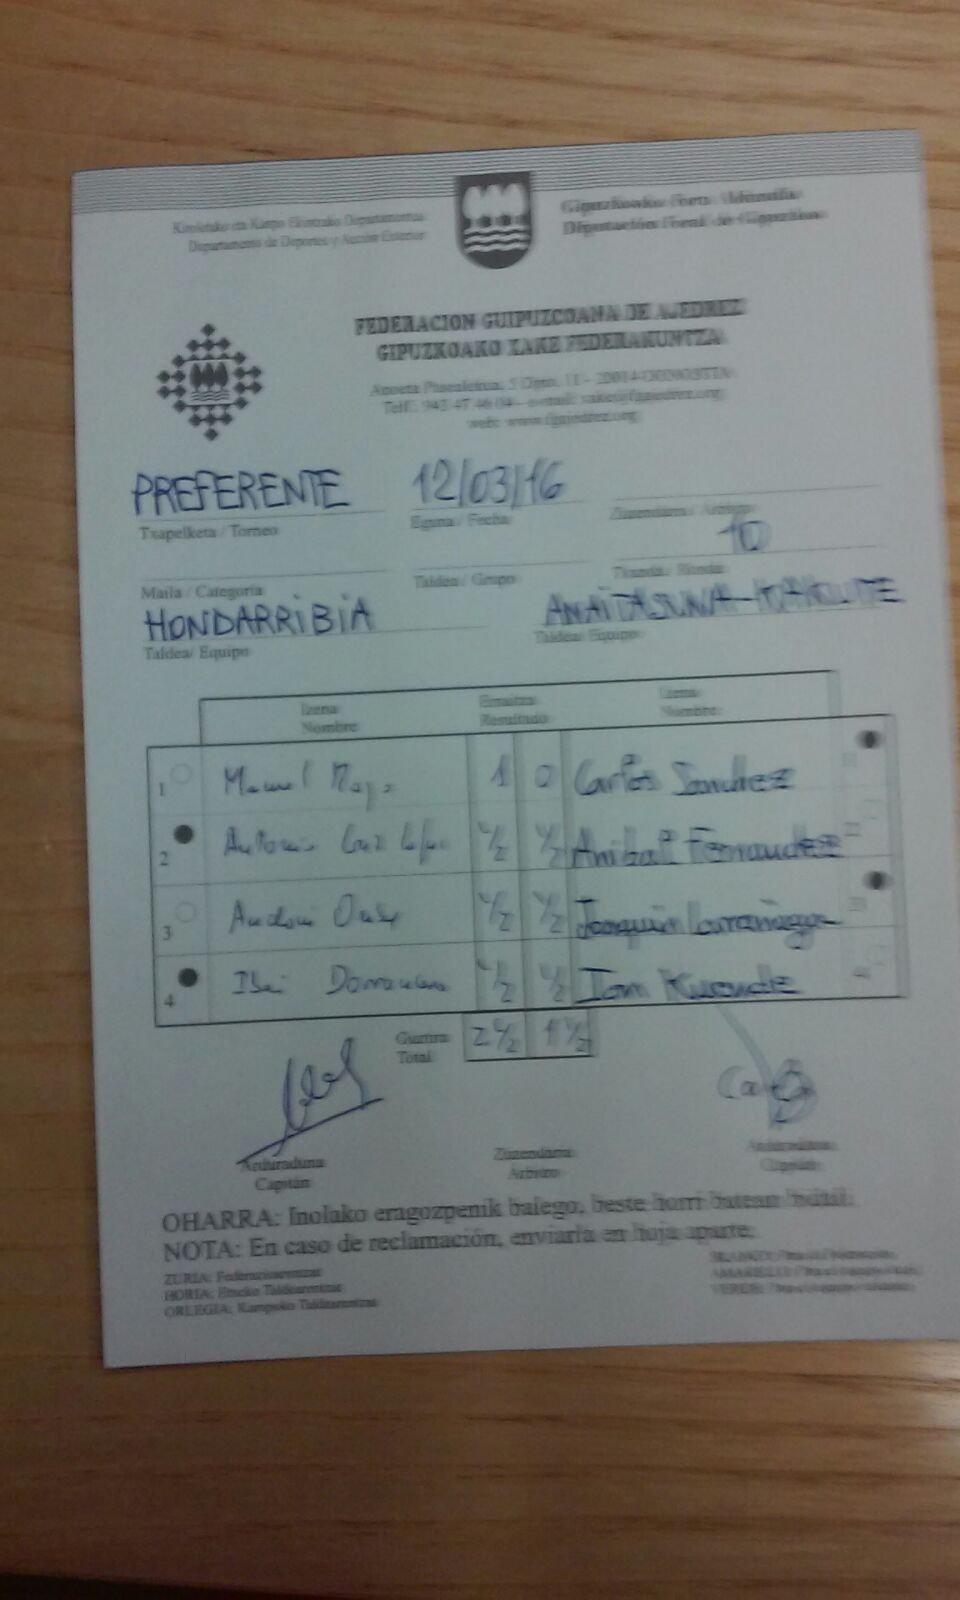 Kiroletako eta Kanpo Ekintzako Departamentua
Departamento de Deportes y Acción Exterior
Gipuzkoako Foru Aldundia
Diputación Foral de Gipuzkoa
FEDERACION GUIPUZCOANA DE AJEDREZ
GIPUZKOAKO XAKE FEDERAKUNTZA
Anoeta Pasealekua, 5 Dpto. 11 - 20014 DONOSTIA
Telf.: 943 47 46 04 - e-mail: xake@fgajedrez.org
web: www.fgajedrez.org
PREFERENTE 12/03/16
Txapelketa / Torneo Eguna / Fecha Zuzendaria / Arbitro
10
Maila / Categoría Taldea / Grupo Txanda / Ronda
HONDARRIBIA ANAITASUNA
Taldea / Equipo Taldea / Equipo
Izena Emaitza Izena
Nombre Resultado Nombre
1 Manuel 1 0 Carlos Sanchez 1
2 Antonio 1/2 1/2 Anibal Fernandez 2
3 Andoni 1/2 1/2 Joaquin Larrañaga 3
4 1/2 1/2 Ian 4
Guztira 2 1/2 1 1/2
Total
Arduraduna Zuzendaria Arduraduna
Capitán Arbitro Capitán
OHARRA: Inolako eragozpenik balego, beste horri batean bidali.
NOTA: En caso de reclamación, enviarla en hoja aparte.
ZURIA: Federazioarentzat BLANCO: Para la Federación
HORIA: Etxeko Taldearentzat AMARILLO: Para el equipo de casa
ORLEGIA: Kanpoko Taldearentzat VERDE: Para el equipo visitante